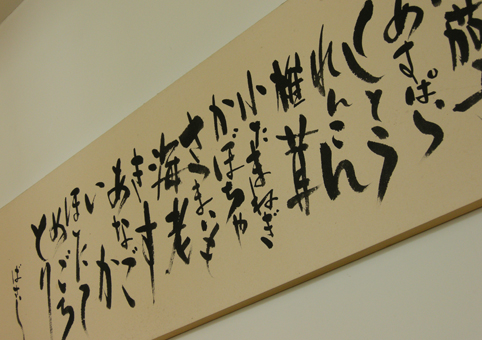 茄
あすぱら
ししとう
れんこん
椎茸
小たまねぎ
かぼちゃ
さつまいも
海老
きす
あなご
いか
ほたて
めごち
とり